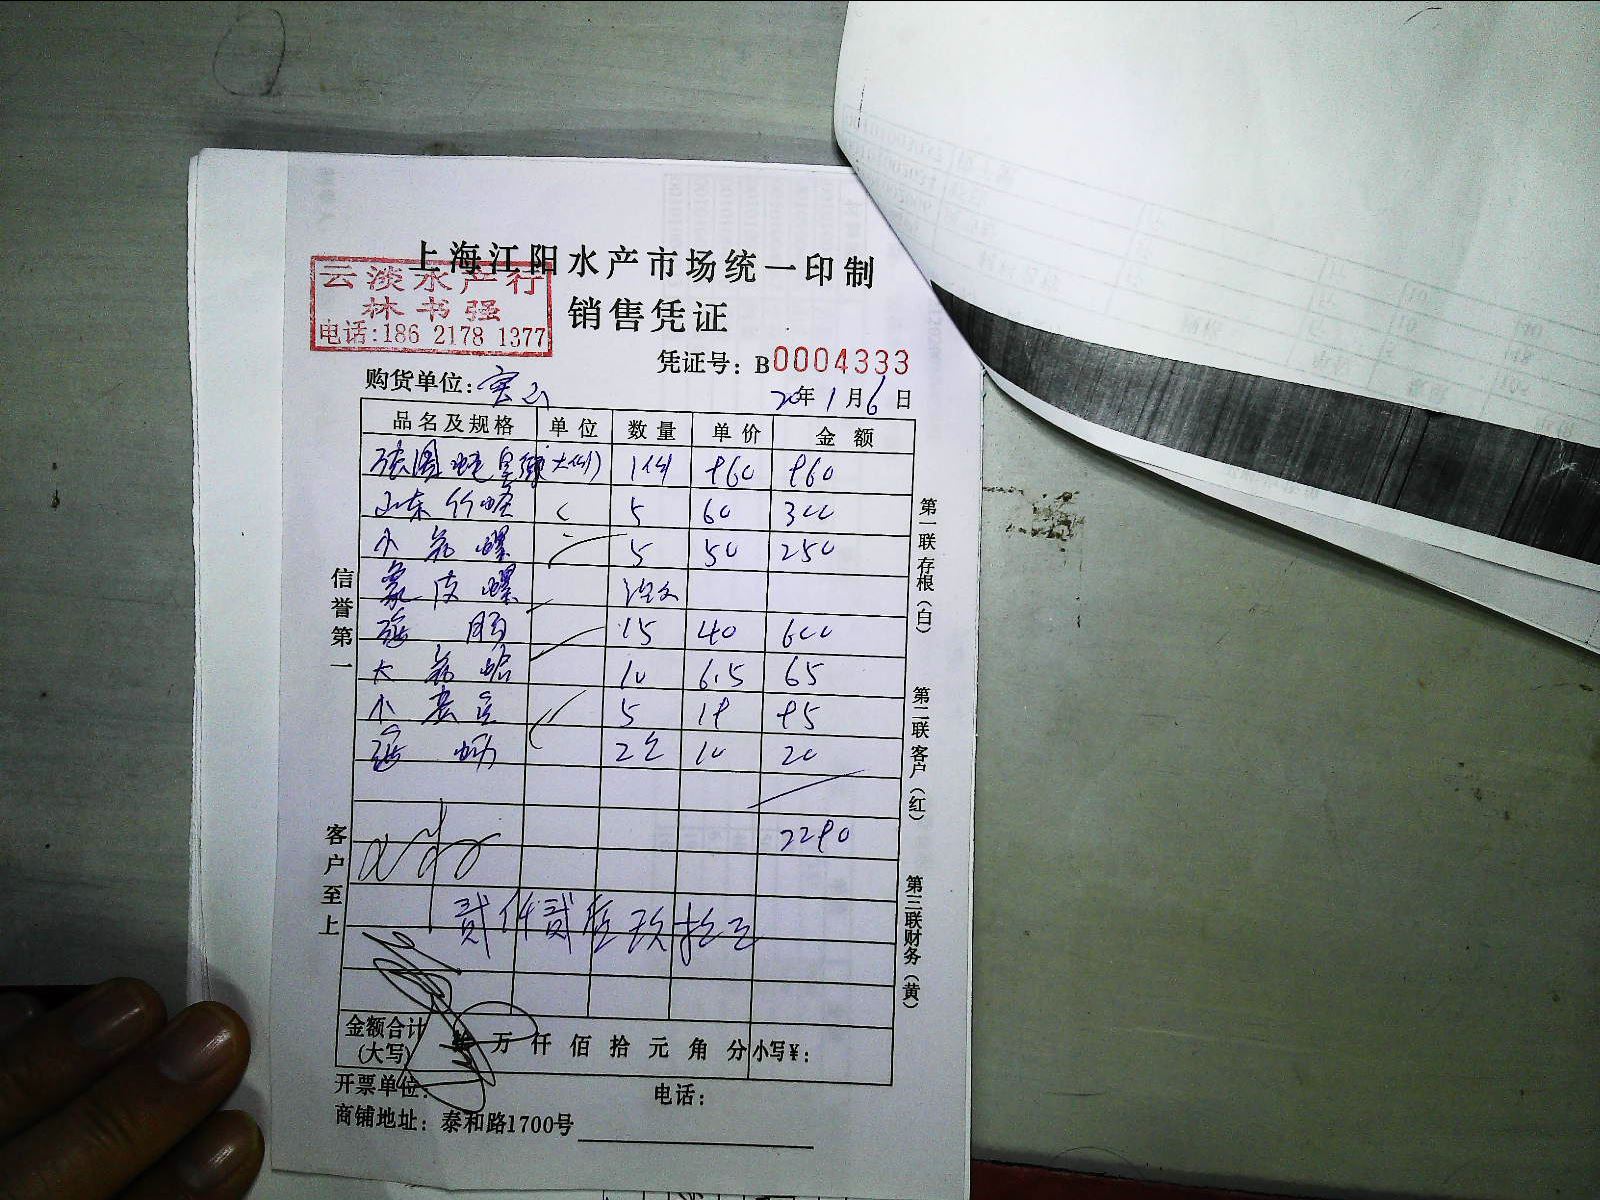 上海江阳水产市场统一印制
云淡水产行
林书强
电话:186 2178 1377
销售凭证
凭证号: B0004333
购货单位:
20年1月6日
品名及规格 单位 数量 单价 金额
1例 960 960
山东竹蛏 5 60 300
小花螺 5 50 250
象皮螺
15 40 600
大花蛤 10 6.5 65
小 5 19 95
2 10 20
2290
贰仟贰佰玖拾元
金额合计(大写) 拾 万 仟 佰 拾 元 角 分 小写¥:
开票单位: 电话:
商铺地址: 泰和路1700号
信誉第一
客户至上
第一联存根(白)
第二联客户(红)
第三联财务(黄)